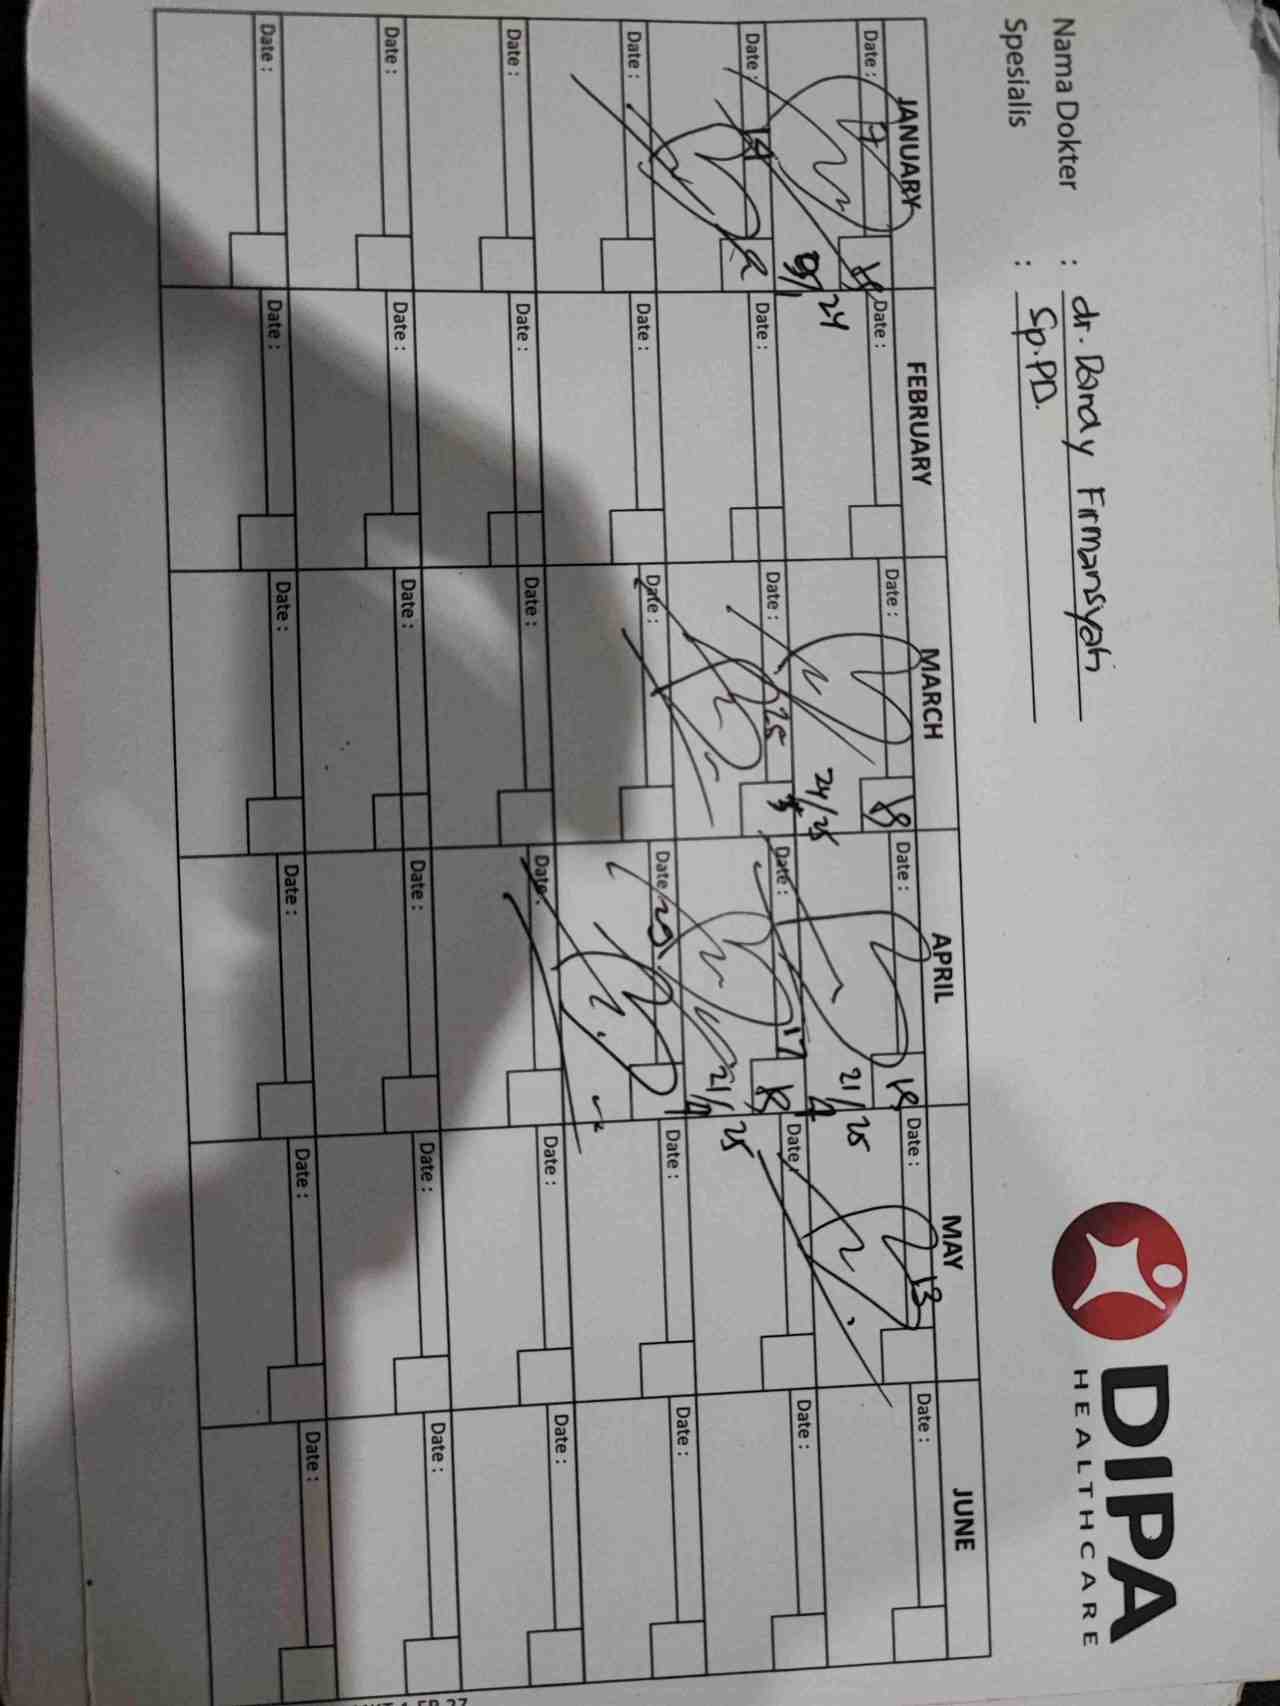 DIPA
HEALTHCARE
Nama Dokter : dr. Dandy Firmansyah
Spesialis : Sp.PD.
JANUARY FEBRUARY MARCH APRIL MAY JUNE
Date : 7 Date : Date : Date : Date : 13 Date :
24/25 21/25
Date : 14 Date : Date : 25 Date : 17 Date : Date :
21/25
Date : Date : Date : Date : 29 Date : Date :
Date : Date : Date : Date : Date : Date :
Date : Date : Date : Date : Date : Date :
Date : Date : Date : Date : Date : Date :